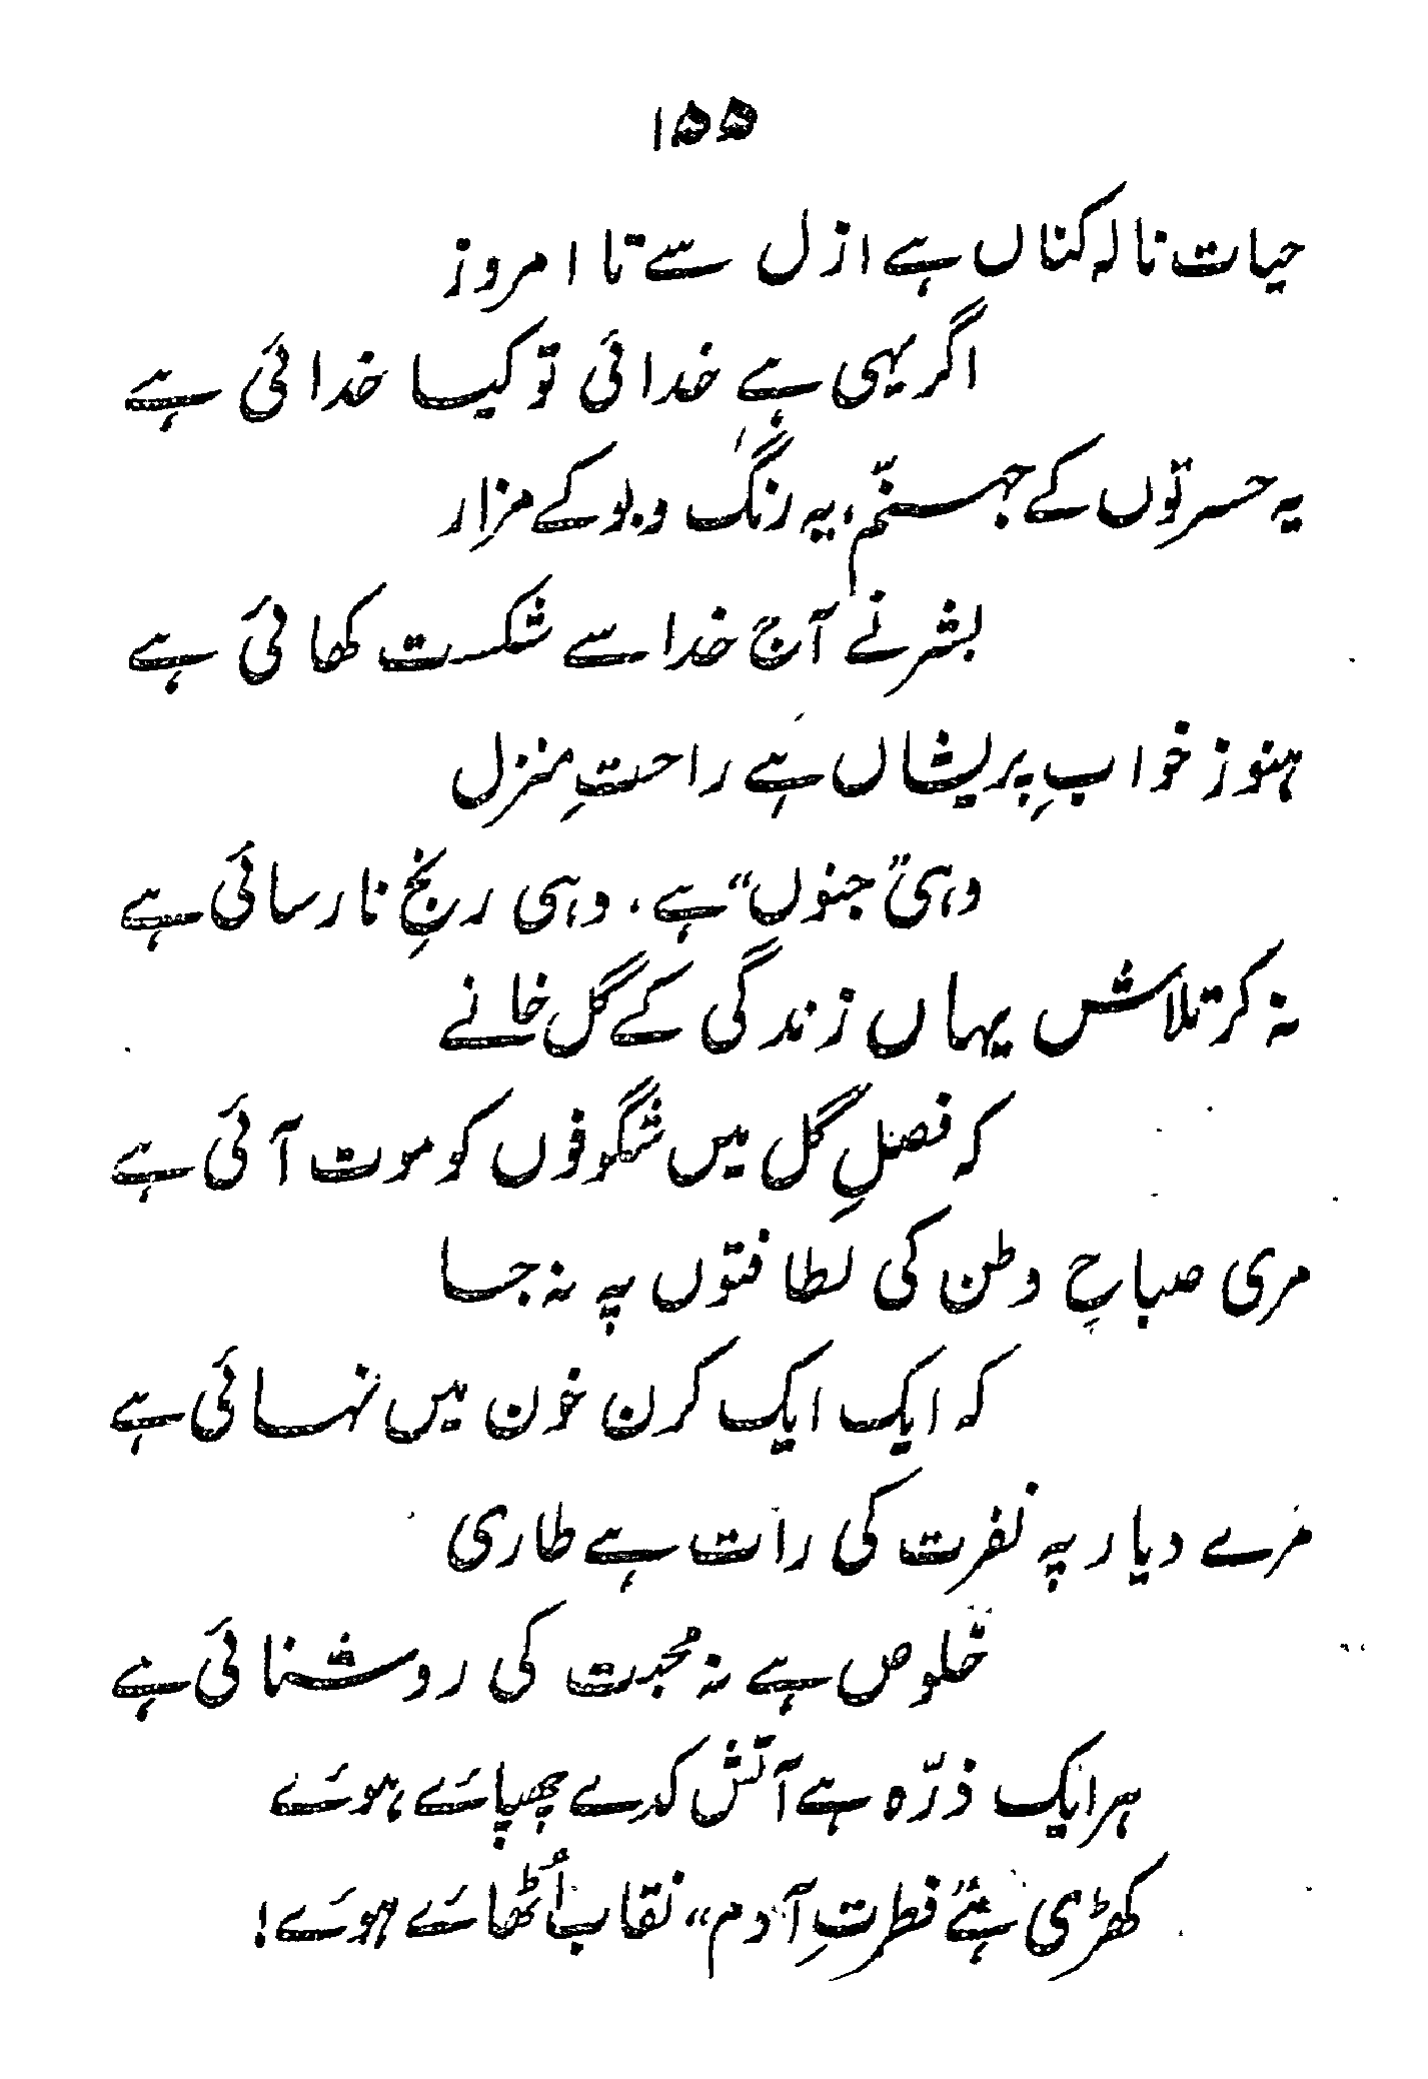 ۱۵۵
حیات نالہ کناں ہے ازل سے تا امروز
اگر یہی ہے خدائی تو کیا خدائی ہے
یہ حسرتوں کے جہنّم، یہ رنگ و بو کے مزار
بشر نے آج خدا سے شکست کھائی ہے
ہنوز خوابِ پریشاں ہے راحتِ منزل
وہی "جنوں" ہے، وہی رنجِ نارسائی ہے
نہ کر تلاش یہاں زندگی کے گل خانے
کہ فصلِ گل میں شگوفوں کو موت آئی ہے
مری صباحِ وطن کی لطافتوں پہ نہ جا
کہ ایک ایک کرن خون میں نہائی ہے
مرے دیار پہ نفرت کی رات ہے طاری
خلوص ہے نہ محبت کی روشنائی ہے
ہر ایک ذرّہ ہے آتش کدے چھپائے ہوئے
کھڑی ہے "فطرتِ آدم" نقاب اُٹھائے ہوئے!